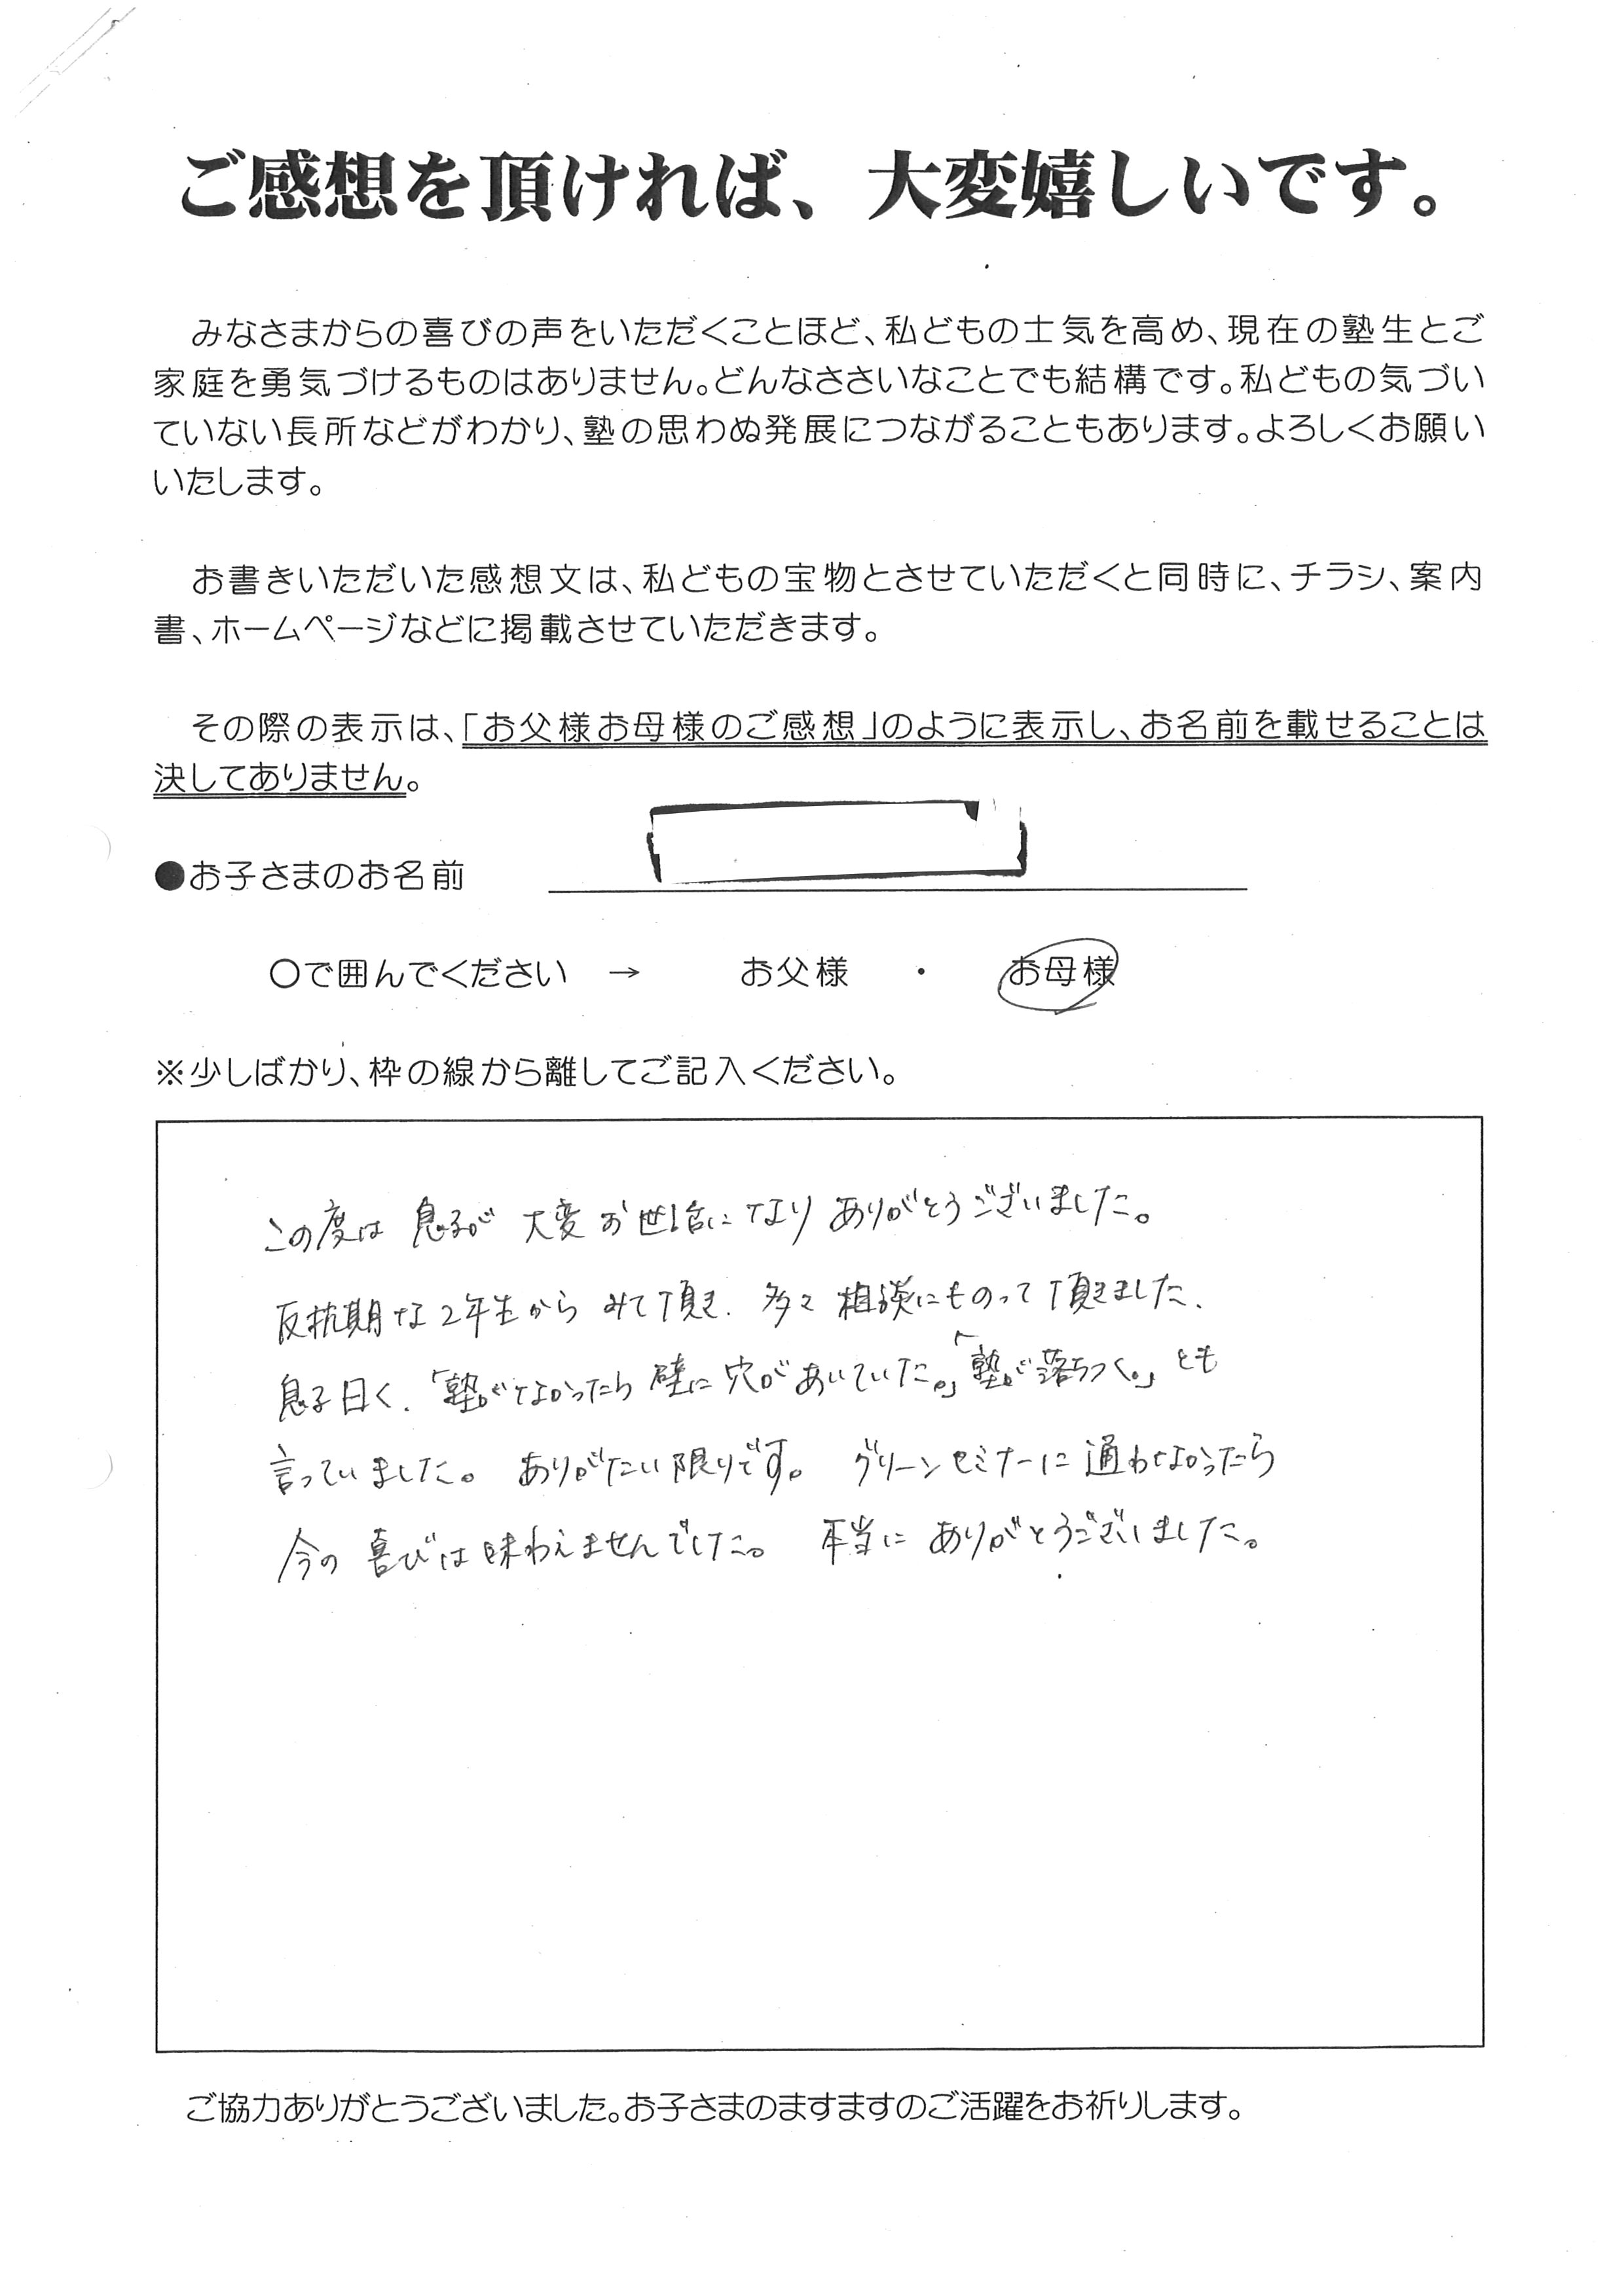 ご感想を頂ければ、大変嬉しいです。
みなさまからの喜びの声をいただくことほど、私どもの士気を高め、現在の塾生とご
家庭を勇気づけるものはありません。どんなささいなことでも結構です。私どもの気づい
ていない長所などがわかり、塾の思わぬ発展につながることもあります。よろしくお願い
いたします。
お書きいただいた感想文は、私どもの宝物とさせていただくと同時に、チラシ、案内
書、ホームページなどに掲載させていただきます。
その際の表示は、「お父様お母様のご感想」のように表示し、お名前を載せることは
決してありません。
●お子さまのお名前
○で囲んでください → お父様 ・ お母様
※少しばかり、枠の線から離してご記入ください。
この度は 息子が 大変お世話になり ありがとうございました。
反抗期な2年生から みて頂き、多々 相談にものって頂きました、
息子曰く、「塾がなかったら 壁に穴があいていた。」「塾が落ちつく。」とも
言っていました。 ありがたい限りです。 グリーンセミナーに通わなかったら
今の 喜びは味わえませんでした。 本当に ありがとうございました。
ご協力ありがとうございました。お子さまのますますのご活躍をお祈りします。